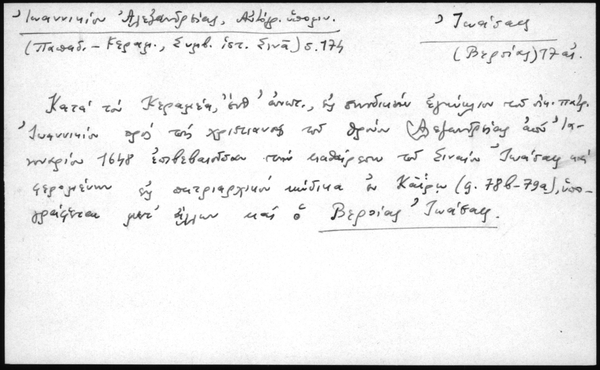 Ἰωαννικίου Ἀλεξανδρείας, Αὐτόγρ. ὑπόμν.
(Παπαδ.-Κεραμ., Συμβ. ἱστ. Σινᾶ) σ. 174
Ἰωάσαφ
(Βερροίας) 17 αἰ.
Κατὰ τὸν Κεραμέα, ἔνθ' ἀνωτ., ἐν συνοδικὸν ἐγκύκλιον τοῦ οἰκ. πατρ.
Ἰωαννικίου πρὸς τοὺς χριστιανοὺς τοῦ θρόνου Ἀλεξανδρείας ἀπὸ Ἰα-
νουαρίου 1648 ἐπιβεβαιοῦσαν τὴν καθαίρεσιν τοῦ Σιναίου Ἰωάσαφ καὶ
φερομένην ἐν πατριαρχικῷ κώδικα ἐν Καΐρῳ (φ. 78b-79a), ὑπο-
γράφεται μετ' ἄλλων καὶ ὁ Βερροίας Ἰωάσαφ.